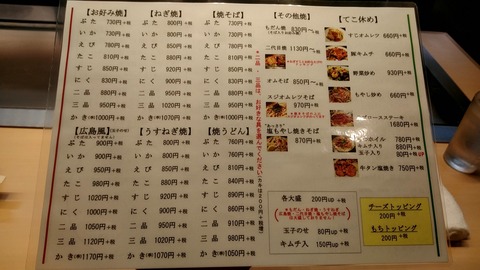 【お好み焼】
ぶた 730円+税
いか 730円+税
えび 780円+税
たこ 780円+税
すじ 850円+税
にく 830円+税
二品 880円+税
三品 950円+税
かき(季)1000円+税
【ねぎ焼】
ぶた 800円+税
いか 800円+税
えび 850円+税
たこ 850円+税
すじ 920円+税
にく 900円+税
二品 950円+税
かき(季)1070円+税
【焼そば】
ぶた 730円+税
いか 730円+税
えび 780円+税
たこ 780円+税
すじ 850円+税
にく 830円+税
二品 880円+税
三品 950円+税
かき(季)1000円+税
【その他焼】
もだん焼 830円〜+税
二代目焼 1130円〜+税
オムそば 850円〜+税
スジオムレツそば
970円+税
塩もやし焼きそば
870円+税
【てこ休め】
すじオムレツ 660円+税
豚キムチ 660円+税
野菜炒め 930円+税
もやし炒め 660円+税
1680円+税
780円+税
キムチ入り 880円+税
玉子入り 80円UP
牛タン塩焼き 750円+税
【広島風】
ぶた 800円+税
いか 800円+税
えび 900円+税
たこ 880円+税
すじ 940円+税
にく 1000円+税
二品 1050円+税
三品 1120円+税
かき(季)1170円+税
【うすねぎ焼】
ぶた 800円+税
いか 800円+税
えび 850円+税
たこ 850円+税
すじ 920円+税
にく 900円+税
二品 950円+税
三品 1020円+税
かき(季)1070円+税
【焼うどん】
ぶた 760円+税
いか 760円+税
えび 810円+税
たこ 810円+税
すじ 880円+税
にく 860円+税
二品 910円+税
三品 980円+税
かき(季)1030円+税
各大盛 200円up+税
玉子のせ 80円up+税
キムチ入 150円up+税
チーズトッピング
200円+税
もちトッピング
200円+税